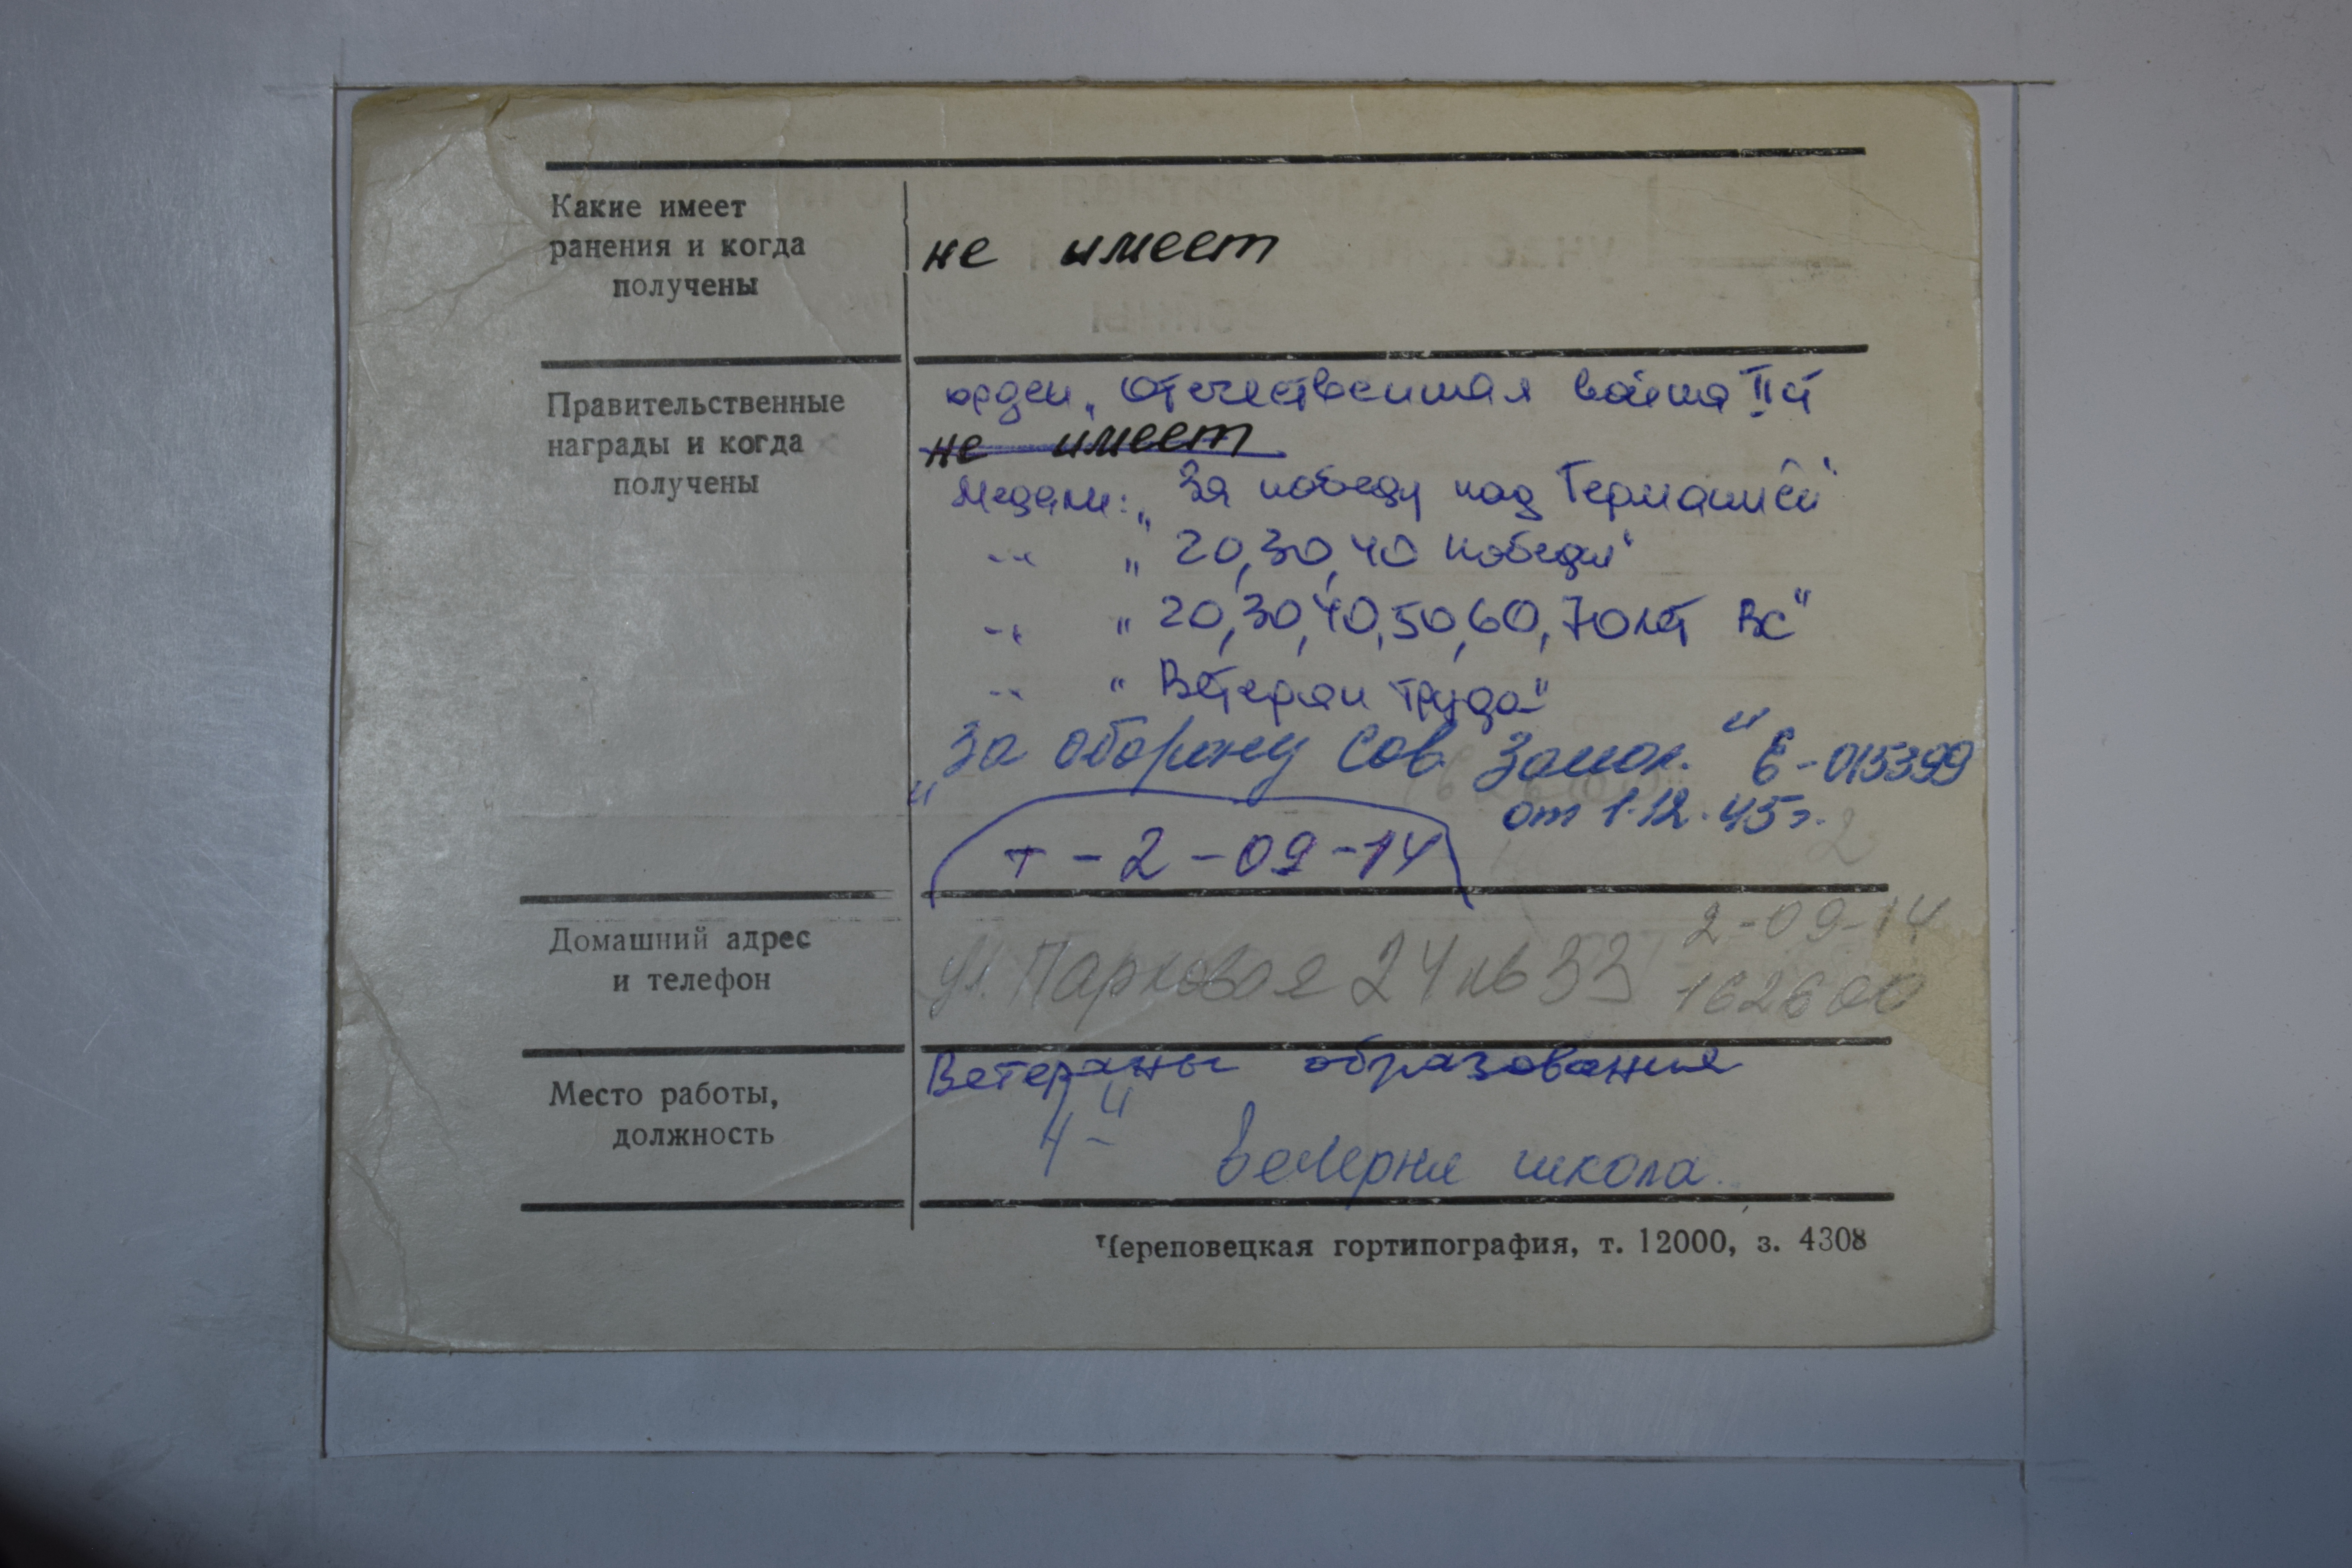 Какие имеет
ранения и когда
получены
не имеет
Правительственные
награды и когда
получены
орден „Отечественная война II ст
не имеет
Медали: „За победу над Германией"
-"- „20, 30, 40 победы"
-"- "20, 30, 40, 50, 60, 70 лет ВС"
-"- "Ветеран труда"
"За оборону Сов. Запол." Е-015399
от 1.12.45г.
т-2-09-14
Домашний адрес
и телефон
2-09-14
ул. Парковая 24 кв 33 162600
Место работы,
должность
Ветераны образования
вечерня школа.
Череповецкая гортипография, т. 12000, з. 4308